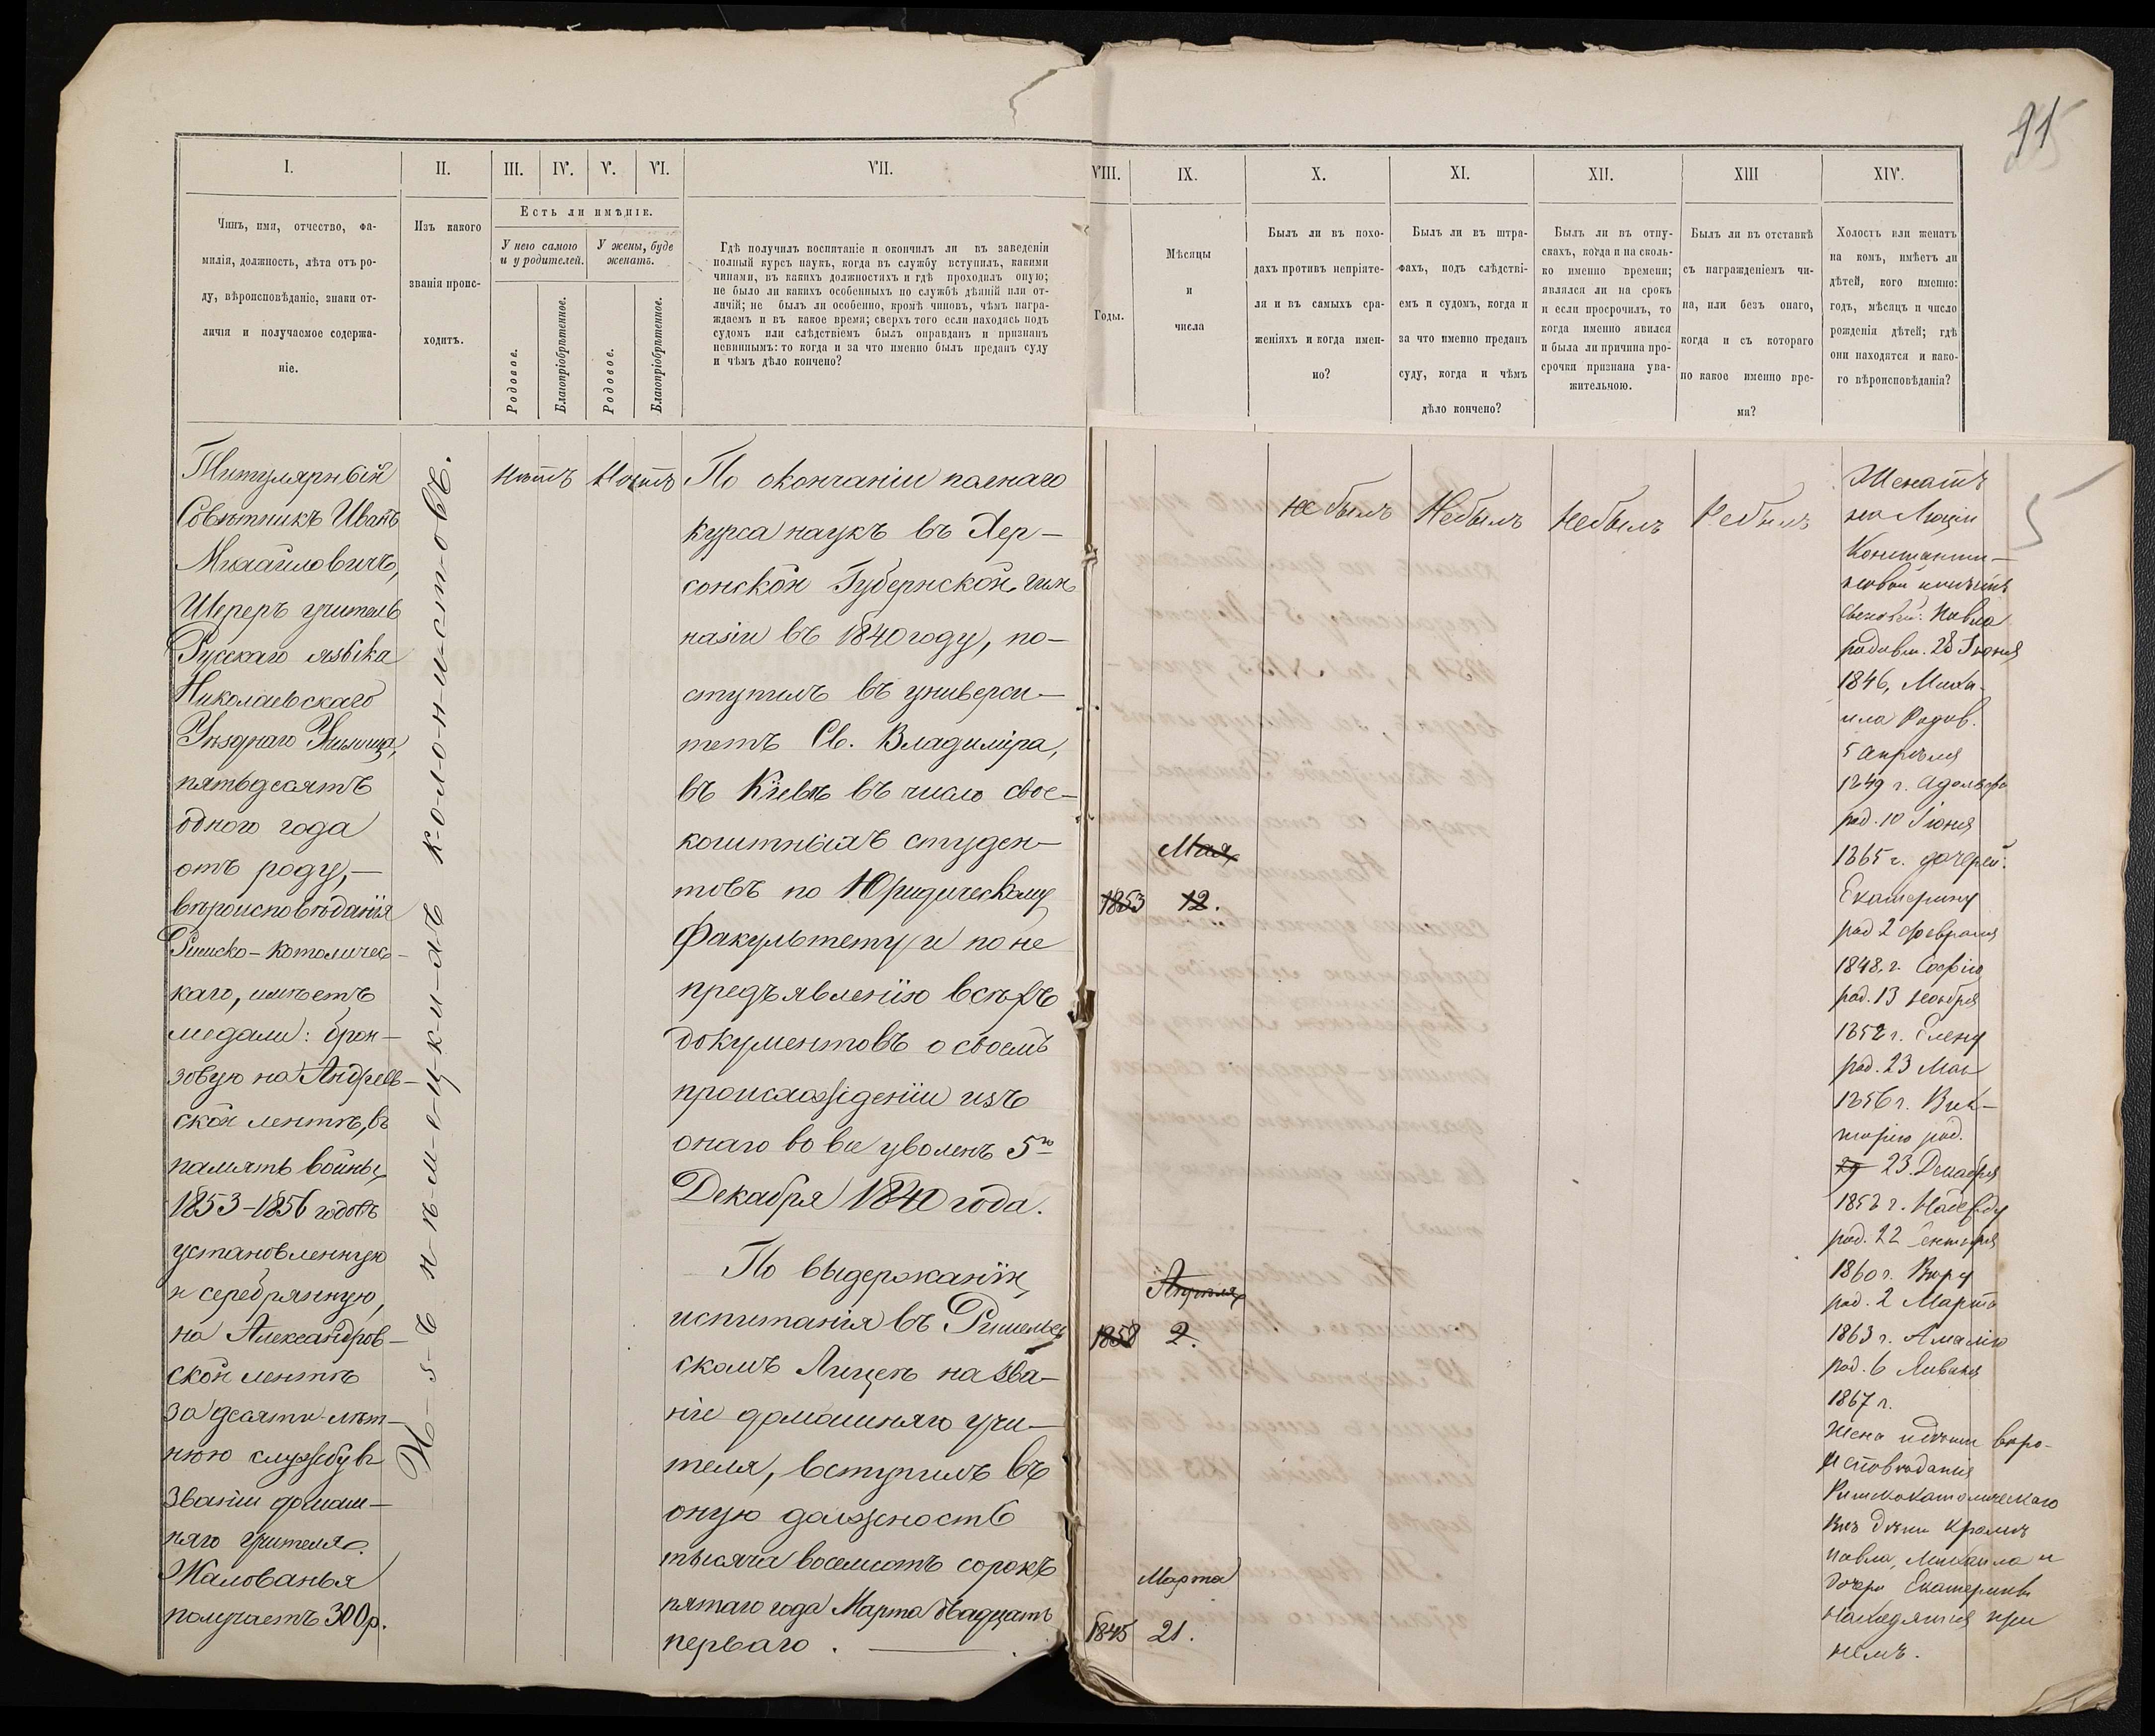 91
I.
II.
III.
IV.
V.
VI.
VII.
VIII.
IX.
X.
XI.
XII.
XIII
XIV.
Чинъ, имя, отчество, фа-
милія, должность, лѣта отъ ро-
ду, вѣроисповѣданіе, знаки от-
личія и получаемое содержа-
ніе.
Изъ какого
званія проис-
ходитъ.
Есть ли имѣніе.
У него самого
и у родителей.
У жены, буде
женатъ.
Родовое.
Благопріобрѣтенное.
Родовое.
Благопріобрѣтенное.
Гдѣ получилъ воспитаніе и окончилъ ли въ заведеніи
полный курсъ наукъ, когда въ службу вступилъ, какими
чинами, въ какихъ должностяхъ и гдѣ проходилъ оную;
не было ли какихъ особенныхъ по службѣ дѣяній или от-
личій; не былъ ли особенно, кромѣ чиновъ, чѣмъ награ-
ждаемъ и въ какое время; сверхъ того если находясь подъ
судомъ или слѣдствіемъ былъ оправданъ и признанъ
невиннымъ: то когда и за что именно былъ преданъ суду
и чѣмъ дѣло кончено?
Годы.
Мѣсяцы
и
числа
Былъ ли въ похо-
дахъ противъ непріяте-
ля и въ самыхъ сра-
женіяхъ и когда имен-
но?
Былъ ли въ штра-
фахъ, подъ слѣдстві-
емъ и судомъ, когда и
за что именно преданъ
суду, когда и чѣмъ
дѣло кончено?
Былъ ли въ отпу-
скахъ, когда и на сколь-
ко именно времени;
являлся ли на срокъ
и если просрочилъ, то
когда именно явился
и была ли причина про-
срочки признана ува-
жительною.
Былъ ли въ отставкѣ
съ награжденіемъ чи-
на, или безъ онаго,
когда и съ котораго
по какое именно вре-
мя?
Холостъ или женатъ
на комъ, имѣетъ ли
дѣтей, кого именно:
годъ, мѣсяцъ и число
рожденія дѣтей; гдѣ
они находятся и како-
го вѣроисповѣданія?
Титулярный
Совѣтникъ Иванъ
Михайловичъ,
Шереръ учитель
Русскаго языка
Николаевскаго
Уѣзднаго Училища,
пятьдесятъ
одного года
отъ роду,—
вѣроисповѣданія
Римско-Католичес-
каго, имѣетъ
медали: брон-
зовую на Андреев-
ской лентѣ, въ
память войны
1853-1856 годовъ
установленную
и серебрянную,
на Александров-
ской лентѣ
за десяти-лѣт-
нюю службу въ
званіи домаш-
няго учителя.
Жалованья
получаетъ 300 р.
И-з-ъ н-ѣ-м-е-ц-к-и-х-ъ к-о-л-о-н-и-с-т-о-в-ъ.
Нѣтъ
Нѣтъ
По окончаніи полнаго
курса наукъ въ Хер-
сонской Губернской гим
назіи въ 1840 году, по-
ступилъ въ универси-
тетъ Св. Владиміра,
въ Кіевѣ въ число свое-
коштныхъ студен-
товъ по Юридическому
Факультету и по не
предъявленію всѣхъ
документовъ о своемъ
происхожденіи изъ
онаго во все уволенъ 5го
Декабря 1840 года.
По выдержаніи
испытанія въ Ришельев
скомъ Лицеѣ на зва-
ніе домашняго учи-
теля, вступилъ въ
оную должность
тысяча восемьсотъ сорокъ
пятаго года Марта двадцать
перваго.
Мая
1853 12.
Апрѣля
1858 2.
Марта
1845 21.
Не былъ
Небылъ
Небылъ
Небылъ
5
Женатъ
на Люціи
Константи-
новой имѣетъ
сыновей: Павла
родивш. 28 Іюня
1846, Миха-
ила Родив.
5 Апрѣля
1849 г. Адольфа
род. 10 Іюня
1865 г. дочерей:
Екатерину
род 2 февраля
1848. г. Софію
род. 13 Ноября
1852 г. Елену
род. 23 Мая
1856 г. Вик-
торію род.
29 23. Декабря
1858 г. Надежду
род. 22 Сентября
1860 г. Вѣру
род. 2 Марта
1863 г. Амалію
род. 6 Января
1867 г.
Жена и дѣти вѣро-
исповѣданія
Римскокатолическаго
Всѣ дѣти кромѣ
павла, Михаила и
дочери Екатерины
находятся при
нёмъ.